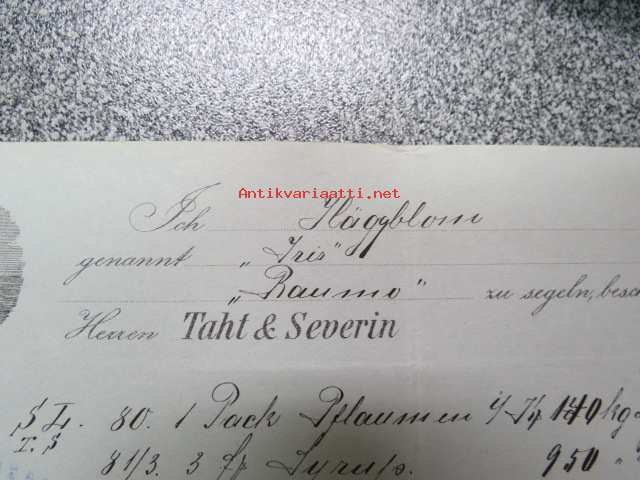 Antikvariaatti.net
Ich Häggblom
genannt „Iris"
„Raumo" zu segeln, besch
Herren Taht & Severin
80. 1 Pack Pflaumen 140 kg
81/3. 3 fr Syrups. 950 "